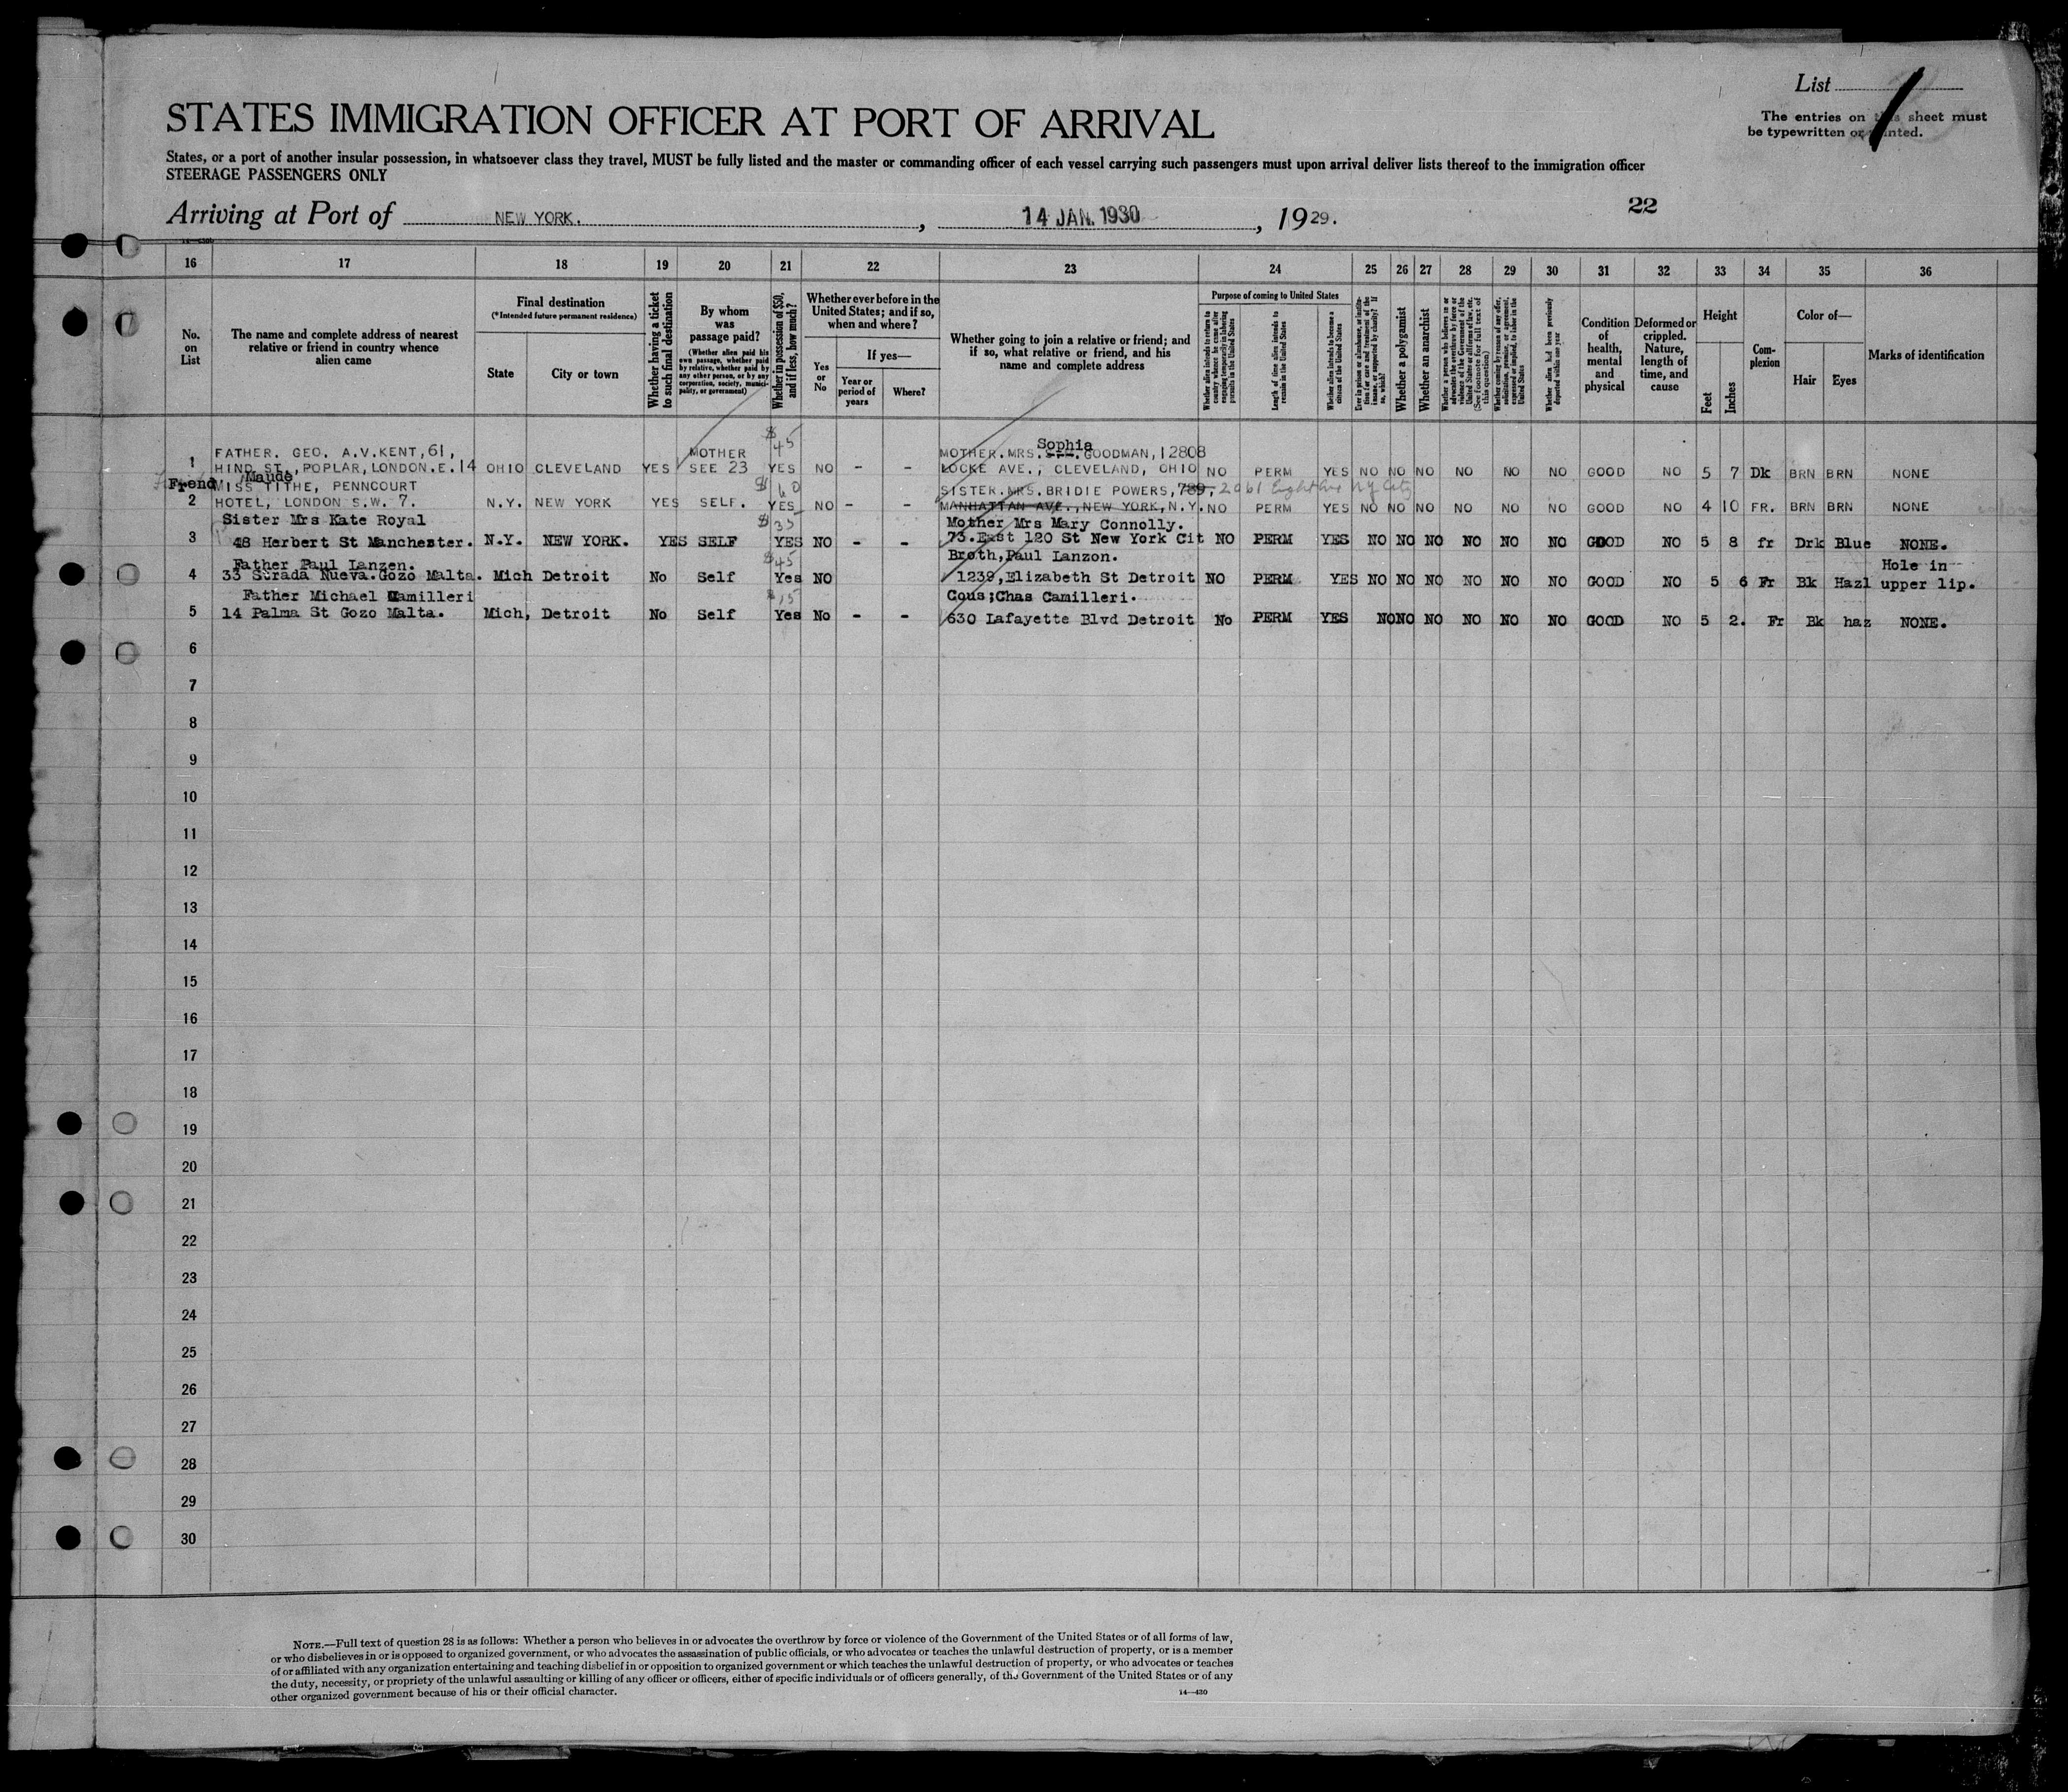 List
The entries on this sheet must
be typewritten or printed.
STATES IMMIGRATION OFFICER AT PORT OF ARRIVAL
States, or a port of another insular possession, in whatsoever class they travel, MUST be fully listed and the master or commanding officer of each vessel carrying such passengers must upon arrival deliver lists thereof to the immigration officer
STEERAGE PASSENGERS ONLY
Arriving at Port of NEW YORK. , 14 JAN. 1930 , 1929.
22
16 17 18 19 20 21 22 23 24 25 26 27 28 29 30 31 32 33 34 35 36
No. on List
The name and complete address of nearest relative or friend in country whence alien came
Final destination
(*Intended future permanent residence)
State
City or town
Whether having a ticket to such final destination
By whom was passage paid?
(Whether alien paid his own passage, whether paid by relative, whether paid by any other person, or by any corporation, society, municipality, or government)
Whether in possession of $50, and if less, how much?
Whether ever before in the United States; and if so, when and where?
Yes or No
If yes—
Year or period of years
Where?
Whether going to join a relative or friend; and if so, what relative or friend, and his name and complete address
Purpose of coming to United States
Whether alien intends to return to country whence he came after engaging temporarily in laboring pursuits in the United States
Length of time alien intends to remain in the United States
Whether alien intends to become a citizen of the United States
Ever in prison or almshouse, or institution for care and treatment of the insane, or supported by charity? If so, which?
Whether a polygamist
Whether an anarchist
Whether a person who believes in or advocates the overthrow by force or violence of the Government of the United States or all forms of law, etc. (See footnote for full text of this question)
Whether coming by reason of any offer, solicitation, promise, or agreement, expressed or implied, to labor in the United States
Whether alien had been previously deported within one year
Condition of health, mental and physical
Deformed or crippled. Nature, length of time, and cause
Height
Feet
Inches
Complexion
Color of—
Hair
Eyes
Marks of identification
$45
Sophia
FATHER. GEO. A.V.KENT, 61, MOTHER MOTHER.MRS. GOODMAN, 12808
1 HIND ST., POPLAR, LONDON.E.14 OHIO CLEVELAND YES SEE 23 YES NO - - LOCKE AVE., CLEVELAND, OHIO NO PERM YES NO NO NO NO NO NO GOOD NO 5 7 Dk BRN BRN NONE
Friend Maude
MISS TITHE, PENNCOURT $60 SISTER.MRS.BRIDIE POWERS, 789, 2061 Eighth Ave NY City
2 HOTEL, LONDON S.W. 7. N.Y. NEW YORK YES SELF. YES NO - - MANHATTAN AVE., NEW YORK, N.Y. NO PERM YES NO NO NO NO NO NO GOOD NO 4 10 FR. BRN BRN NONE
Sister Mrs Kate Royal $35 Mother Mrs Mary Connolly.
3 48 Herbert St Manchester. N.Y. NEW YORK. YES SELF YES NO - - 73.East 120 St New York Cit NO PERM YES NO NO NO NO NO NO GOOD NO 5 8 fr Drk Blue NONE.
Father Paul Lanzen. $45 Broth,Paul Lanzon. Hole in
4 33 Strada Nueva.Gozo Malta. Mich Detroit No Self Yes NO 1239,Elizabeth St Detroit NO PERM YES NO NO NO NO NO NO GOOD NO 5 6 Fr Bk Hazl upper lip.
Father Michael Camilleri $15 Cous;Chas Camilleri.
5 14 Palma St Gozo Malta. Mich, Detroit No Self Yes No - - 630 Lafayette Blvd Detroit No PERM YES NO NO NO NO NO NO GOOD NO 5 2. Fr Bk haz NONE.
6
7
8
9
10
11
12
13
14
15
16
17
18
19
20
21
22
23
24
25
26
27
28
29
30
NOTE.—Full text of question 28 is as follows: Whether a person who believes in or advocates the overthrow by force or violence of the Government of the United States or of all forms of law,
or who disbelieves in or is opposed to organized government, or who advocates the assassination of public officials, or who advocates or teaches the unlawful destruction of property, or is a member
of or affiliated with any organization entertaining and teaching disbelief in or opposition to organized government or which teaches the unlawful destruction of property, or who advocates or teaches
the duty, necessity, or propriety of the unlawful assaulting or killing of any officer or officers, either of specific individuals or of officers generally, of the Government of the United States or of any
other organized government because of his or their official character.
14—430